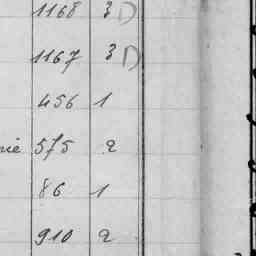 1168 3 D
1167 3 D
456 1
nie 575 2
86 1
910 2